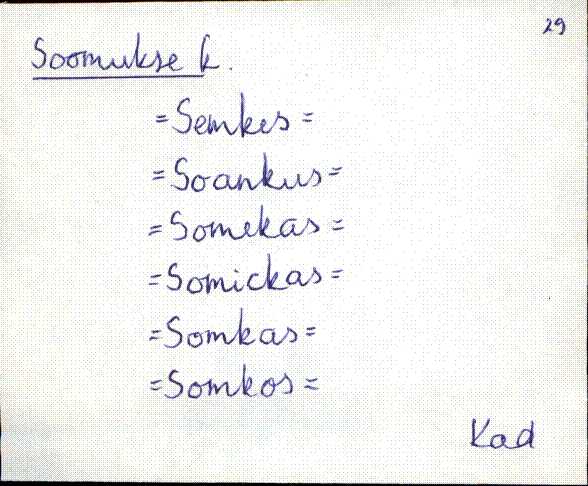 29
Soomukse k.
=Semkes=
=Soankus=
=Somekas=
=Somickas=
=Somkas=
=Somkos=
Kad